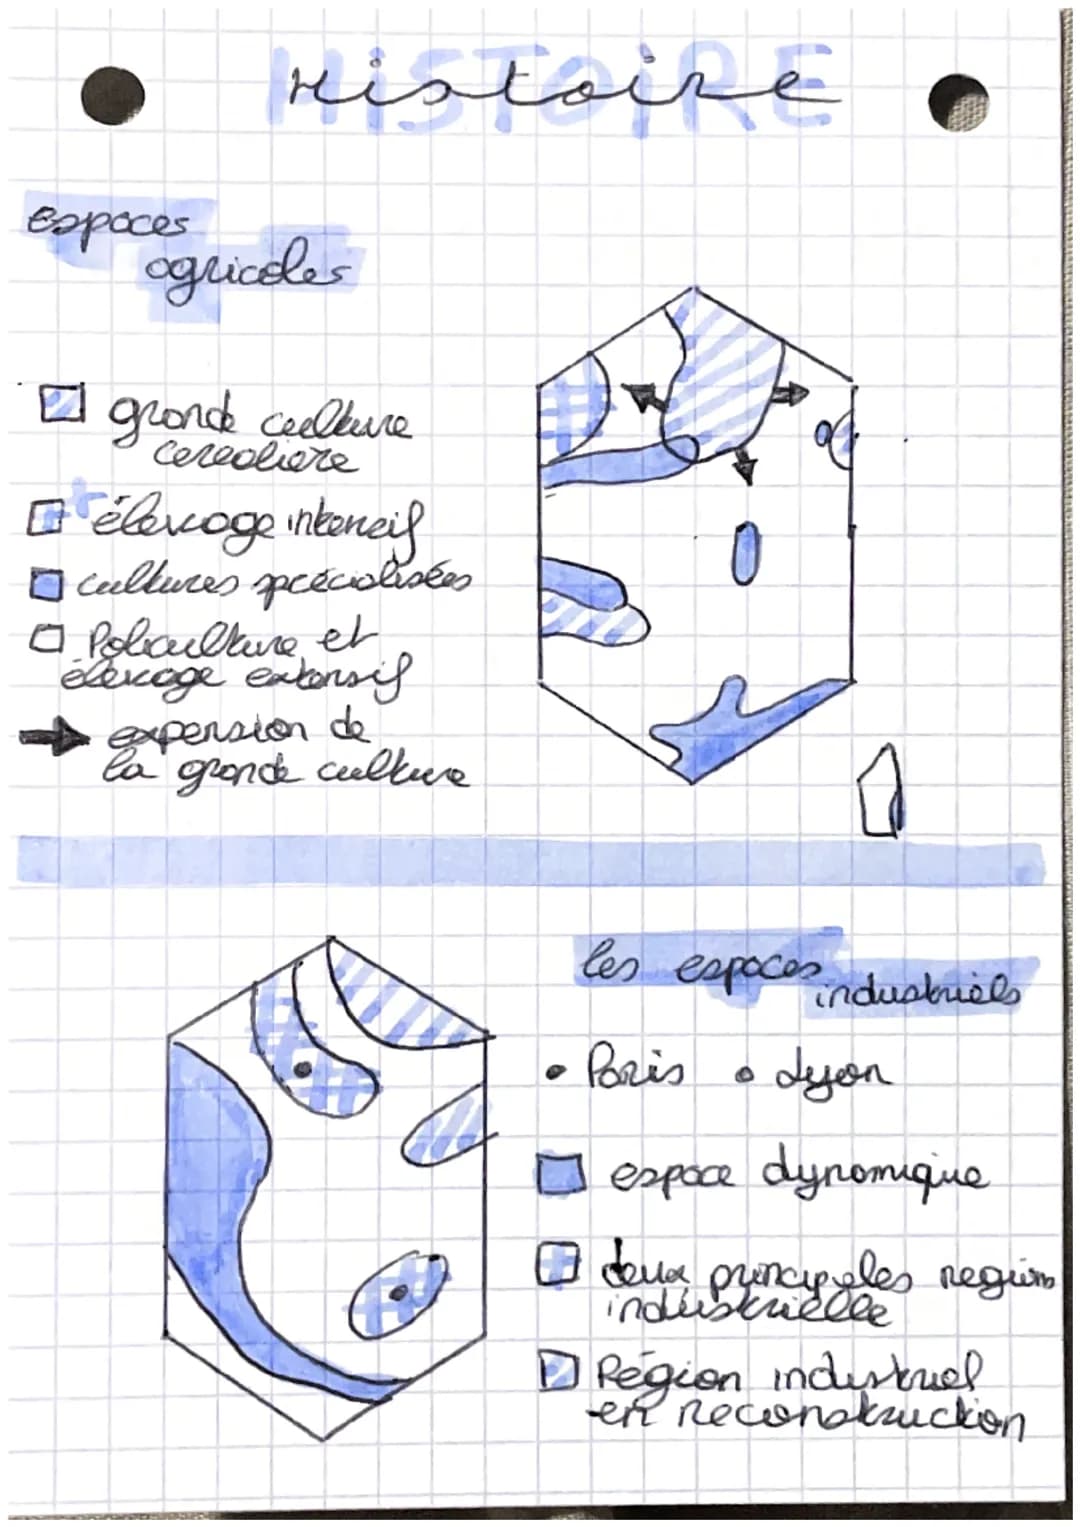 Histoire
espaces
agricoles
grande culture
cerealiere
élevage intensif
cultures spécialisées
Policulture et
élevage extensif
expension de
la grande culture
les espaces
industriels
Paris Lyon
espace dynamique
deux principales regions
industrielle
Région industriel
en reconstruction